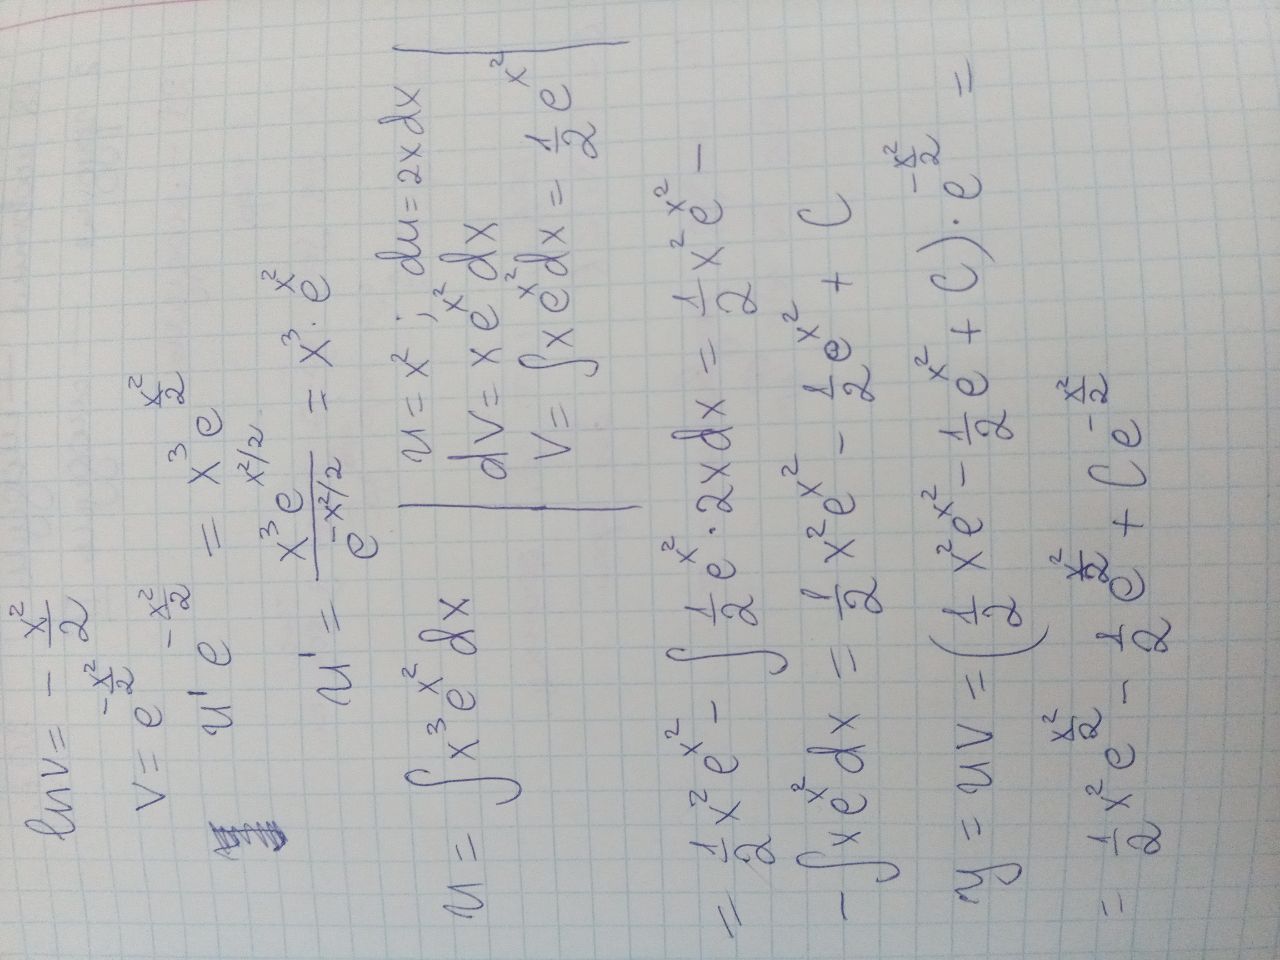 ln v = - x²/2
v = e^(-x²/2)
u' e^(-x²/2) = x³ e^(x²/2)
u' = x³ e^(x²/2) / e^(-x²/2) = x³ · e^(x²)
u = ∫ x³ e^(x²) dx | u = x² ; du = 2x dx |
dv = x e^(x²) dx
v = ∫ x e^(x²) dx = 1/2 e^(x²)
= 1/2 x² e^(x²) - ∫ 1/2 e^(x²) · 2x dx = 1/2 x² e^(x²) -
- ∫ x e^(x²) dx = 1/2 x² e^(x²) - 1/2 e^(x²) + C
y = uv = (1/2 x² e^(x²) - 1/2 e^(x²) + C) · e^(-x²/2) =
= 1/2 x² e^(x²/2) - 1/2 e^(x²/2) + C e^(-x²/2)